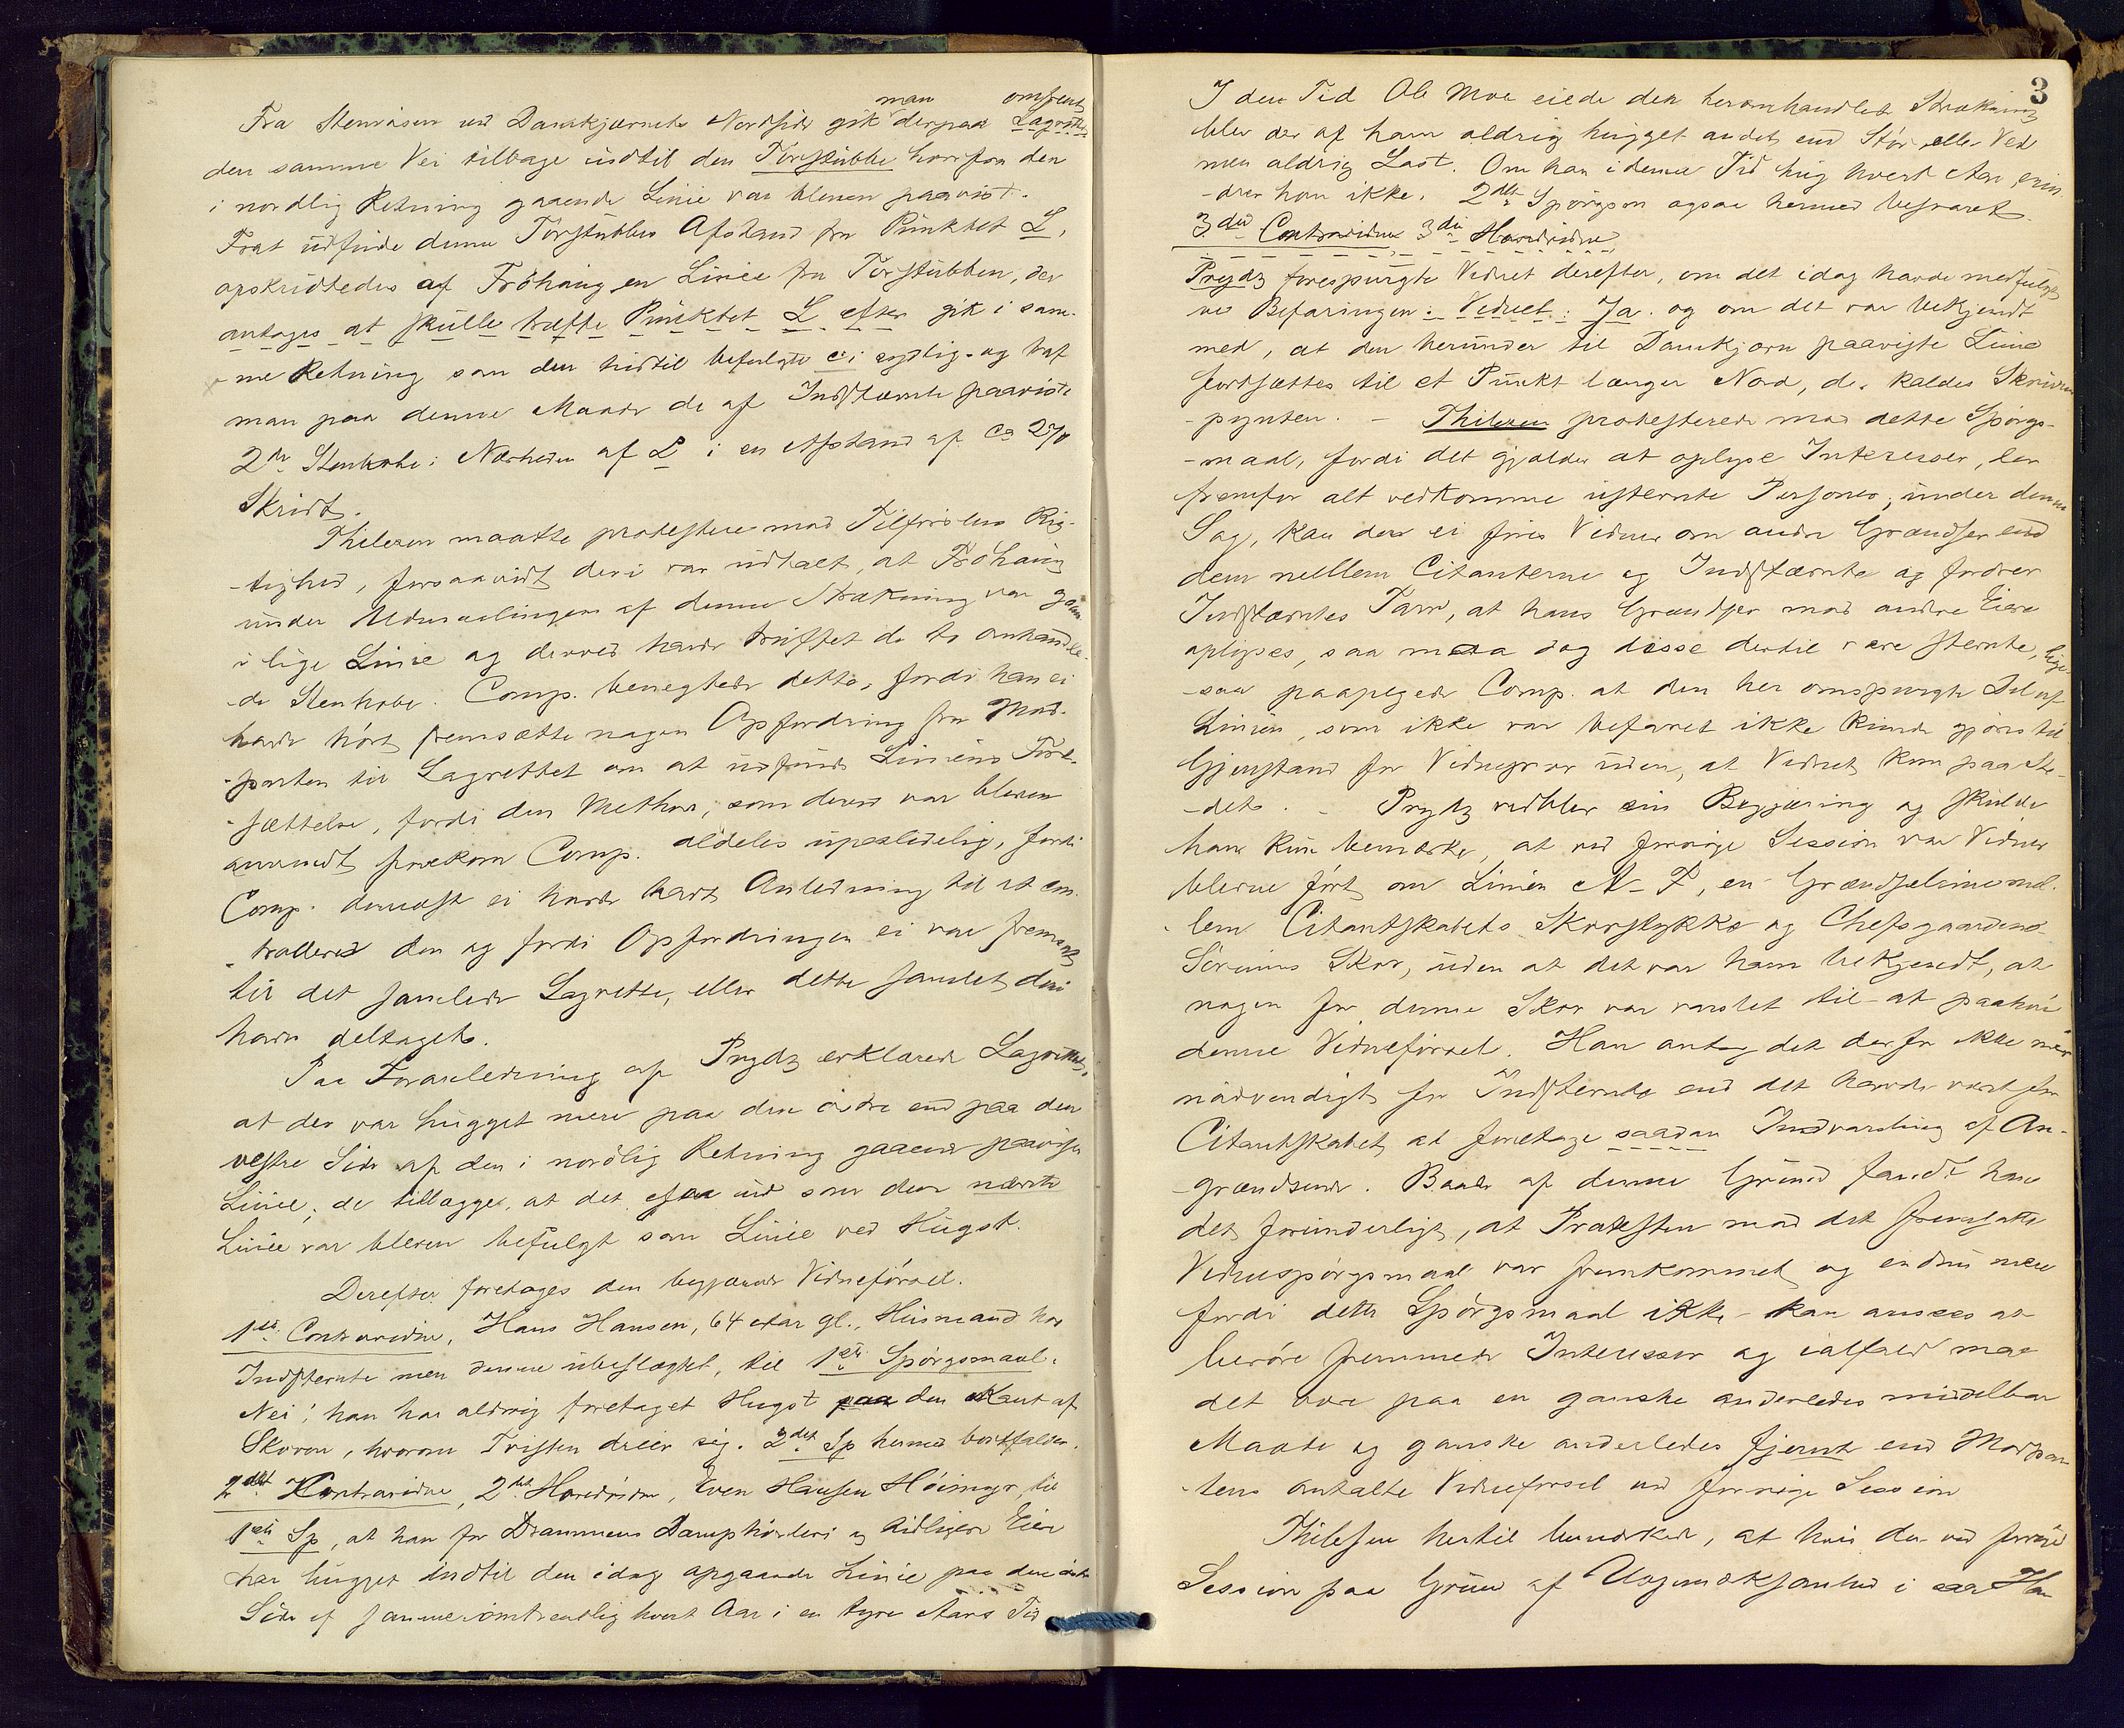 man omtrent
Fra Stenrösen ved Danskjærnets Nordside gik derpaa Lagrettet
den samme Vei tilbage indtil den Törstubbe hvorfra den
i nordlig Retning gaaende Linie var bleven paavist.
For at udfinde denne Törstubbes Afstand fra Punktet L,
opskridtedes af Fröhaug en Linie fra Törstubben, der
antages at skulle træffe Punktet L efter gik i sam-
me Retning som den hidtil befulgte i sydlig og traf
man paa denne Maade de af Indstævnte paaviste
2de Stenhobe i Nærheden af L i en Afstand af Ca 270
Skridt.
Thilesen maatte protestere mod Tilförslens Rig-
-tighed, forsaavidt deri var udtalt, at Fröhaug
under Udmaalingen af denne Strækning var gaaet
i lige Linie og derved havde truffet de to omhandle-
de Stenhobe. Comp. benegtede dette, fordi han ei
havde hört fremsætte nogen Opfordring fra Mod-
-parten til Lagrettet om at udfinde Liniens Fort-
-sættelse, fordi den Methode, som derved var bleven
anvendt forekom Comp. aldeles upaalidelig, fordi
Comp. dernæst ei havde havt Anledning til at con-
-trollere den og fordi Opfordringen ei var fremsat
til det samlede Lagrette, eller dette samlet deri
havde deltaget.
Paa Foranledning af Prydz erklærede Lagrettet,
at der var hugget mere paa den östre end paa den
vestre Side af den i nordlig Retning gaaende paaviste
Linie; de tillægge, at det saa ud som den nævnte
Linie var bleven befulgt som Linie ved Hugst.
Derefter foretages den begjærede Vidneförsel.
1ste Contravidne, Hans Hansen, 64 Aar gl., Husmand hos
Indstevnte men denne ubeslægtet, til 1ste Spörgsmaal:
Nei! han har aldrig foretaget Hugst paa den Kant af
Skoven, hvorom Tvisten dreier sig. 2det Sp hermed bortfalder.
2det Contravidne, 2det Hovedvidne, Even Hansen Höimyr, til
1ste Sp, at han for Drammens Damphövleri og tidligere Eiere
har hugget indtil den idag opgaaede Linie paa den östre
Side af samme omtrentlig hvert Aar i en tyve Aars Tid
3
I den Tid Ole Moe eiede den heromhandlede Strækning
blev der af ham aldrig hugget andet end Stör eller Ved
men aldrig Last. Om han i denne Tid hug hvert Aar, erin-
-drer han ikke. 2det Spörgsm ogsaa hermed besvaret.
3die Contravidne 3die Hovedvidne
Prydz forespurgte Vidnet derefter, om det idag havde medfulgt
ved Befaringen: Vidnet: Ja. og om det var bekjendt
med, at den herunder til Danskjern paavigte Linie
fortsættes til et Punkt længer Nord, der kaldes
-pynten. - Thilesen protesterede mod dette Spörgs-
-maal, fordi det gjælder at oplyse Interesser, der
fremfor alt vedkomme ustevnte Persones, under denne
Sag, kan der ei föres Vidner om andre Grændser end
dem mellem Citanterne og Indstævnte og fordrer
Indstævntes Tarv, at hans Grændser mod andre Eiere
oplyses, saa maa dog disse dertil være stevnte, lige-
-saa paapegede Comp. at den her omspurgte Del af
Linien, som ikke var befaret ikke kunde gjöres til
Gjenstand for Vidneprov uden, at Vidnet kom paa Ste-
-det. - Prydz vedblev sin Begjæring og skulde
han kun bemærke, at ved forrige Session var Vidner
blevne fört om Linien N-P, en Grændselinie mel-
-lem Citantskabets Skovstykke og Chefsgaardens
Skov, uden at det var ham bekjendt, at
nogen for denne Skov var varslet til at paahöre
denne Vidneförsel. Han antog det derfor ikke mer
nödvendigt for Indstevnte end det havde været for
Citantskabet at foretage saadan Indvarsling af An-
-grændsende. Baade af denne Grund fandt han
det forunderligt, at Protesten mod det fremsatte
Vidnespörgsmaal var fremkommet og endnu mere
fordi dette Spörgsmaal ikke kan ansees at
beröre fremmede Interesser og ialfald maa
det være paa en ganske anderledes middelbar
Maade og ganske anderledes fjernt end Modpar-
-tens omtalte Vidneförsel ved forrige Session
Thilesen hertil bemærkede, at hvis der ved forrige
Session paa Grund af Uopmærksomhed i